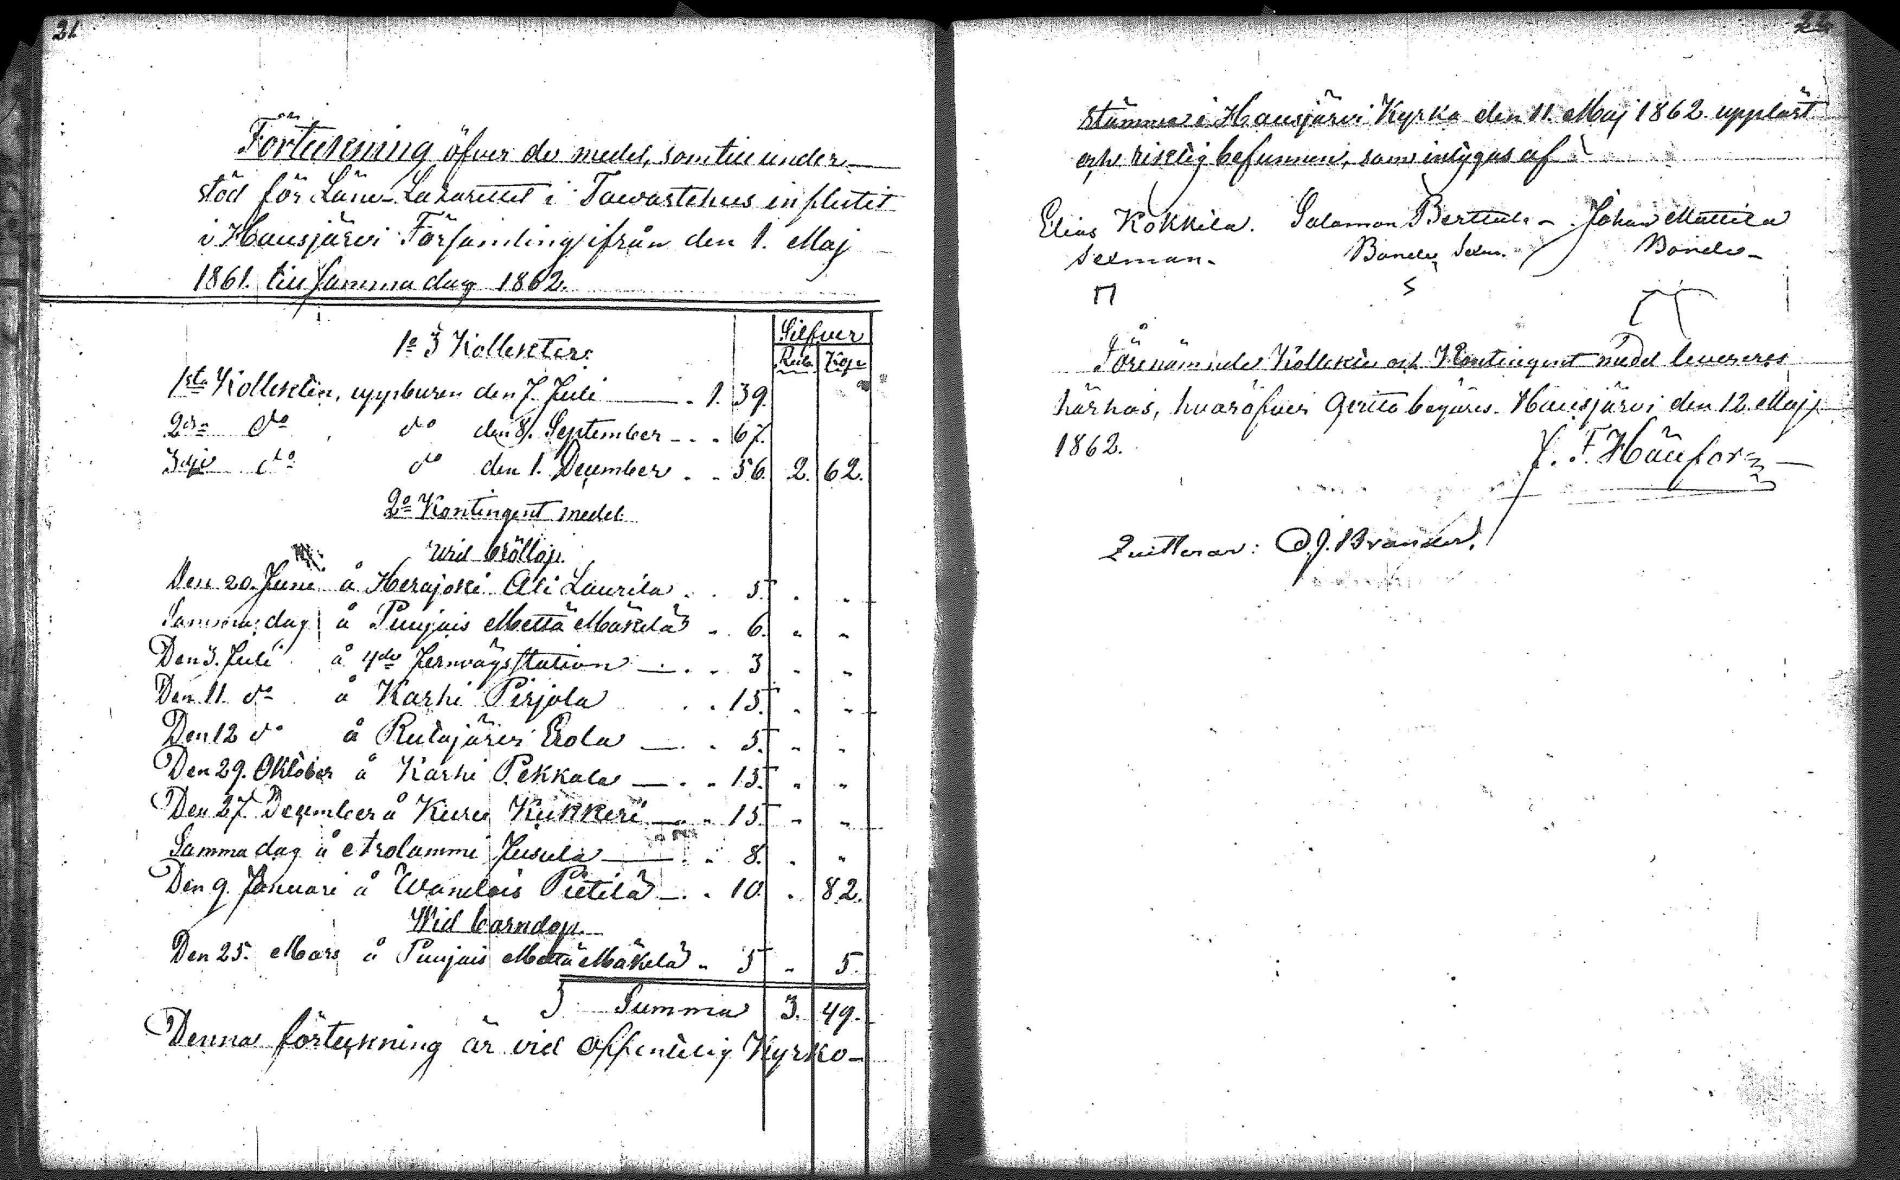 21
Förteckning öfver de medel, som till under-
stöd för Läns-Lazarettet i Tawastehus influtit
i Hausjärvi Församling ifrån den 1. Maj
1861. till samma dag 1862.
Silfver
Rub. Kop.
1o 3 Kollekter:
1sta Kollekten, uppburen den 7. Juli 1. 39.
2dra do do den 8. September 67.
3dje do do den 1. December 56. 2. 62.
2o Kontingent medel
wid bröllop.
Den 20. Juni å Herajoki Ali Laurila 5.
Samma dag å Puujais Mettä Mäkelä 6.
Den 3. Juli å 4de Jernvägsstation 3
Den 11. do å Karhi Pirjola 15.
Den 12 do å Rutajärvi Erola 5.
Den 29. Oktober å Karhi Pekkala 15.
Den 27. December å Kuru Kukkeri 15.
Samma dag å Arolammi Jusula 8.
Den 9. Januari å Wandais Pietilä 10. 82.
Wid barndop.
Den 25. Mars å Puujais Mettä Mäkelä 5 5.
Summa 3. 49.
Denna förteckning är vid offentelig Kyrko-
22
stämma i Hausjärvi Kyrka den 11. Maj 1862. uppläst
och riktig befunnen, som intygas af
Elias Kokkila. Salomon Berttula Johan Mattila
Sexman. Bonde, Sexm. Bonde
Förenämnde Kollekt och Kontingent medel levereres
härhos, hvaröfver Qvitto begäres. Hausjärvi den 12. Maj
1862.
J. F. Hänfors
Quitterar: O. J. Brander.